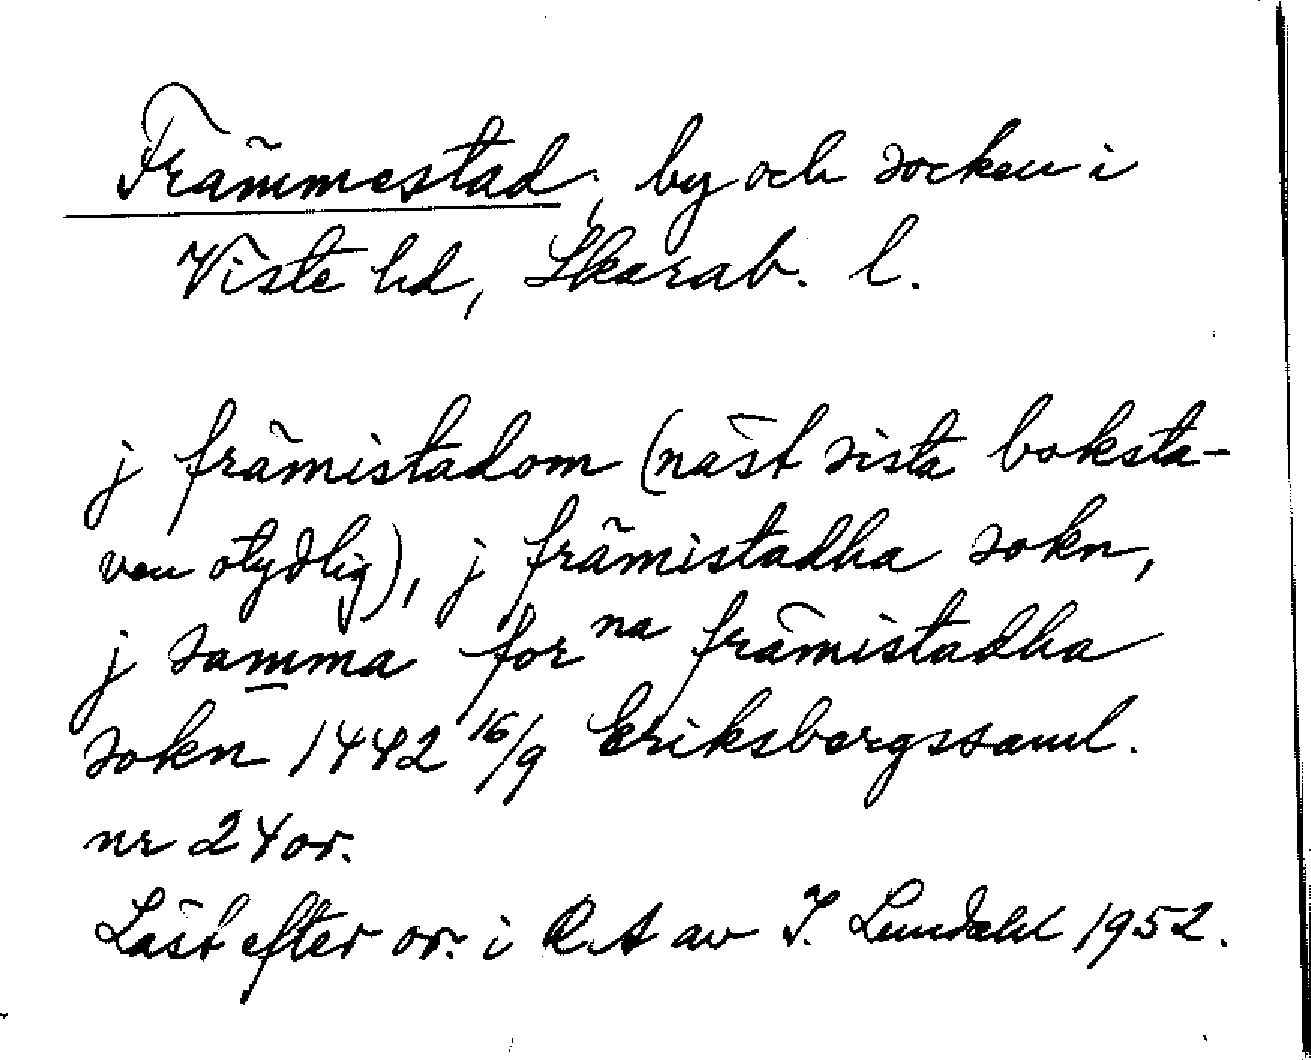 Främmestad, by och socken i
Viste hd, Skarab. l.
j främistadom (näst sistaboksta-
ven otydlig), j främistadha sokn,
j samma for na främistadha
sokn 1442 16/9 Eriksbergssaml.
nr 24 or.
Läst efter or. i RA av I. Lundahl 1952.